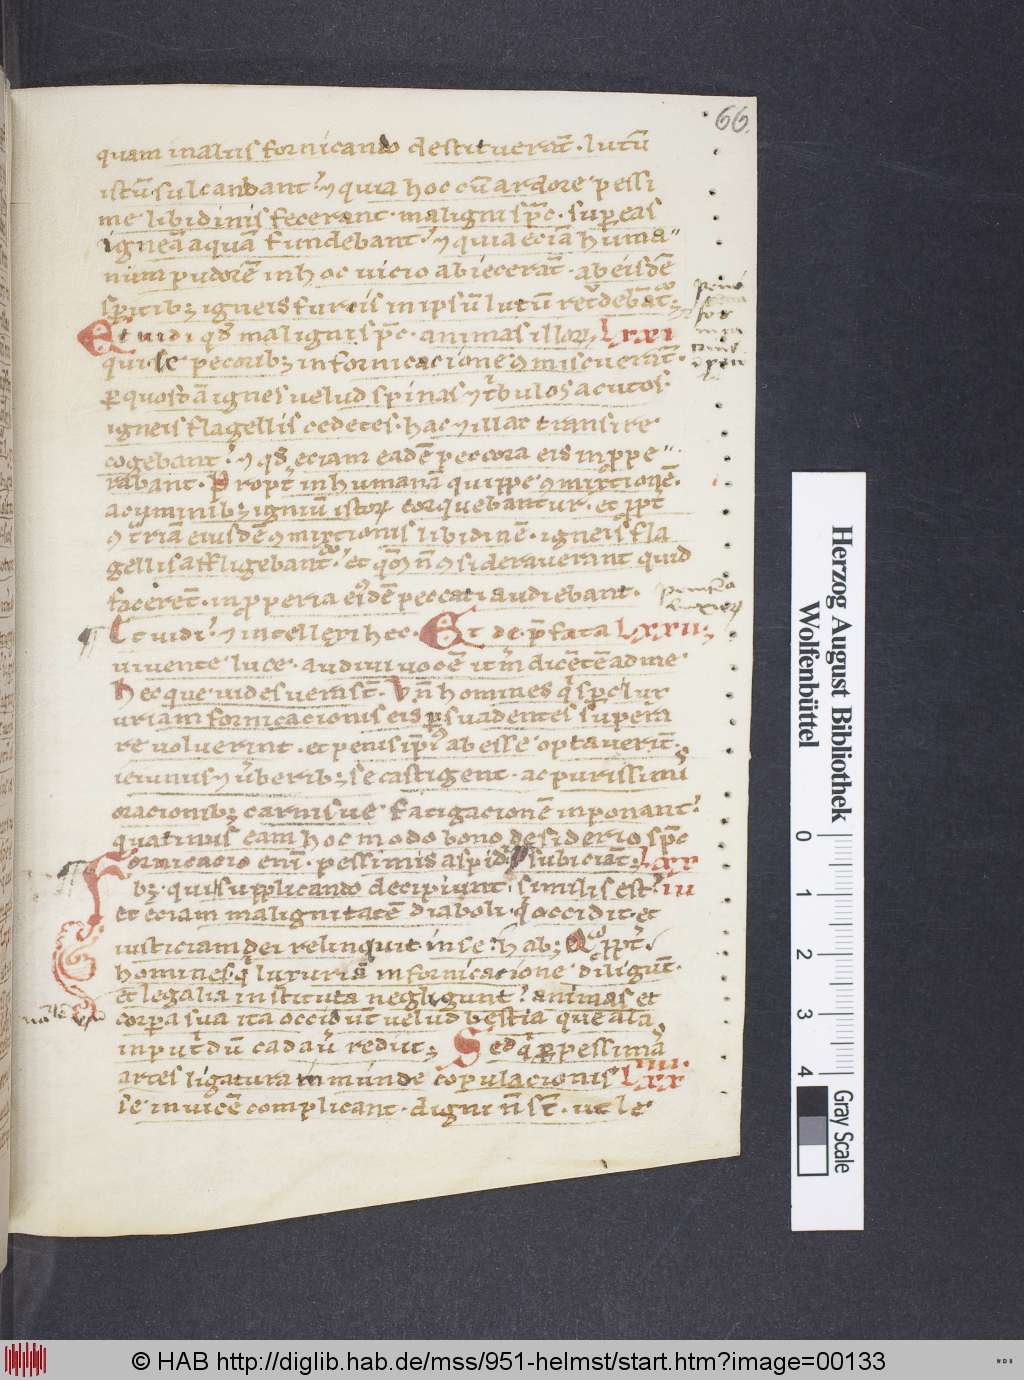 66.
quam in aliis fornicando destituerāt. lutū
istū sulcabant. ⁊ quia hoc cū ardore pessi
me libidinis fecerant. maligni spc̄. sup eas
igneā aquā fundebant. ⁊ quia eciā huma
num pudorē in hoc uicio abiecerāt. ab eisdē
spiritibꝫ igneis furcis in ipsū lutū
Et uidi qd maligni spc̄. animas illoꝝ LXXI
qui se pecoribꝫ in fornicacione ꝯmiscuerāt.
ꝑ quosdā ignes uelud spinas ⁊ t'bulos acutos.
igneis flagellis cedētes. hac ⁊ illac transire
cogebant. ⁊ qd eciam eadē peccora eis inprope
rabant. Propt inhumanā quippe ꝯmixtionē.
acuminibꝫ igniū istoꝝ torquebantur. et ppt
ꝯt'riā eiusdē ꝯmixtionis libidinē. igneis fla
gellis affligebant. et qm̄ n̄ ꝯsiderauerant quid
facerēt. inpperia eidē peccati audiebant.
Et uidi. ⁊ intellexi hec. Et de p̄fata LXXII
uiuente luce. audiui uocē it'm dicētē ad me
Hec que uides uera sn̄t. Vn̄ homines qui
uriam fornicacionis eis ꝑsuadentes supera
re uoluerint. et penis abesse optauerīt.
ieiuniis ⁊ u'beribꝫ se castigent. ac purissimi
oracionibꝫ carnisue fatigacionē inponant.
quatinus eam hoc modo bono desiderio spc̄
Fornicacio eni. pessimis aspid subiciāt. LXX
bꝫ. qui supplicando decipiunt. similis est. III
et eciam malignitatē diaboli. q occidit. et
iusticiam dei relinquit in se. habꝫ
homines. q luxuriā in fornicacione diligūt.
et legalia instituta negligunt. animas et
corpa sua ita occidūt uelud bestia que alia
in put'dū cadau' redit. Sed q ꝑ pessima
artes ligatura inmunde copulacionis LXX IIII.
se inuicē complicant. digni n̄ sūt. ut le
Herzog August Bibliothek
Wolfenbüttel
0 1 2 3 4
Gray Scale
© HAB http://diglib.hab.de/mss/951-helmst/start.htm?image=00133